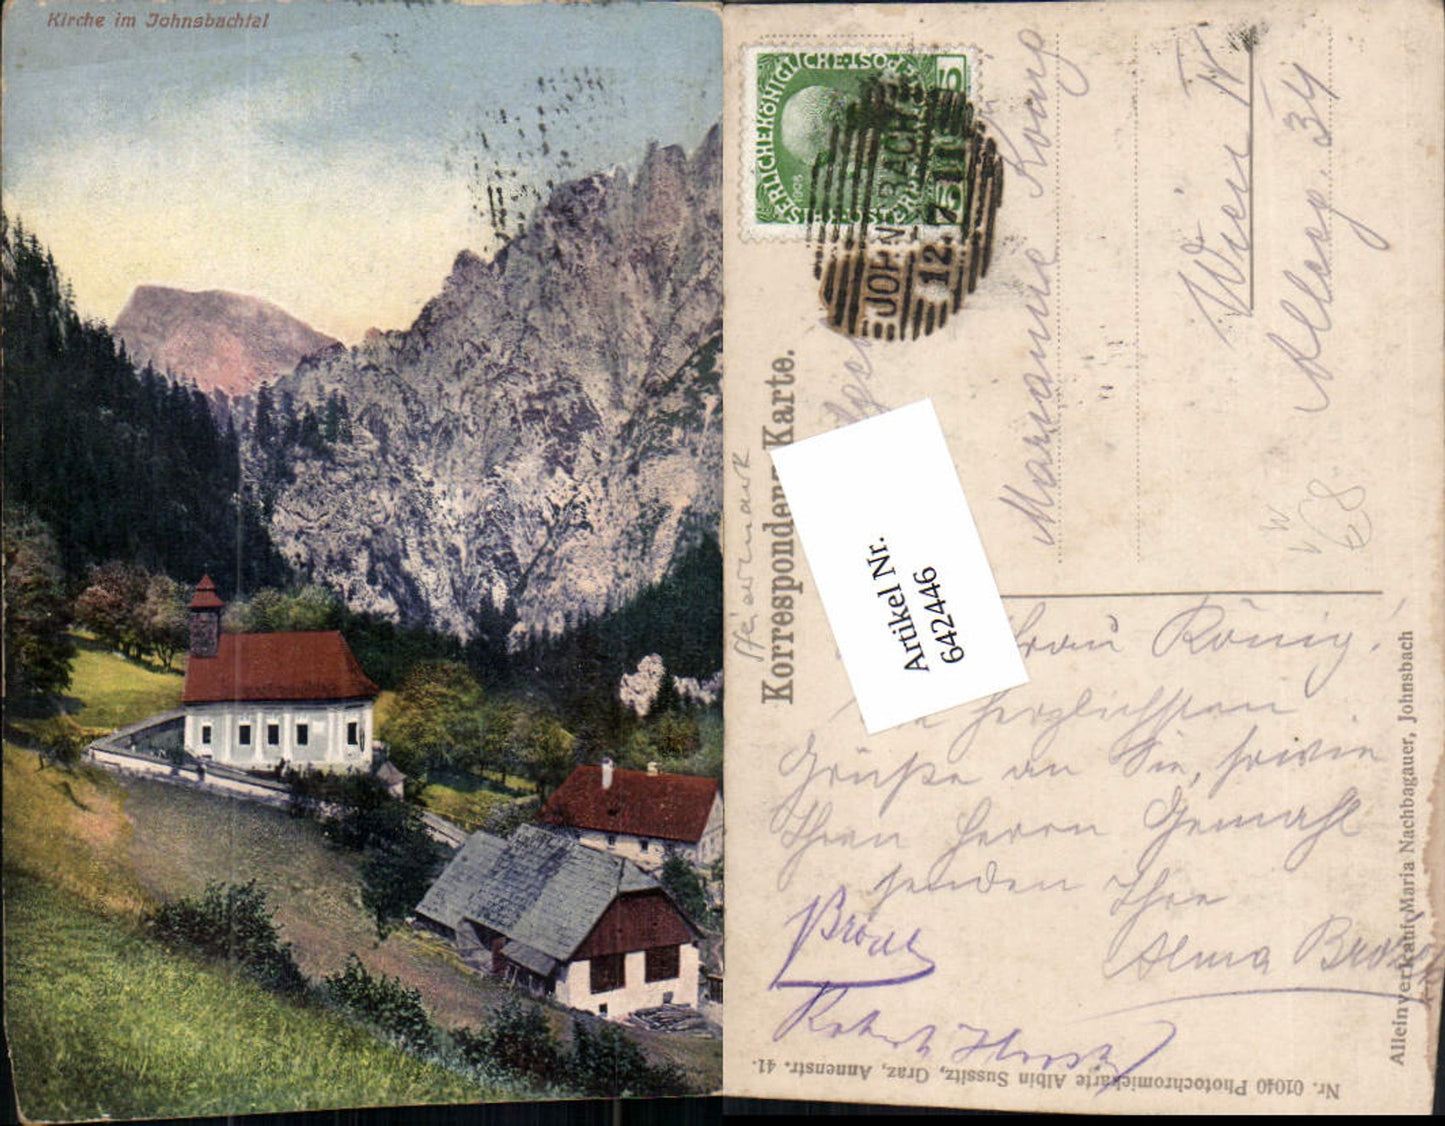 Kirche im Johnsbachtal
KAISERLICHE KÖNIGLICHE ÖSTERR. POST
5
5
1908
JOHNSBACH
12
Korrespondenz-Karte.
Steiermark
Artikel Nr.
642446
Marianne König
Wien IV
Alleeg. 34
68
Frau König!
herzlichsten
Grüße an Sie, sowie
Ihren Herrn Gemahl
senden Ihre
Alma
Robert
Alleinverkauf Maria Nachbagauer, Johnsbach
Nr. 01040 Photochromiekarte Albin Sussitz, Graz, Annenstr. 41.